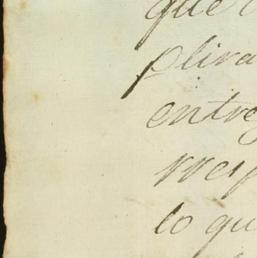 que
plira
entre
rrey
lo qu